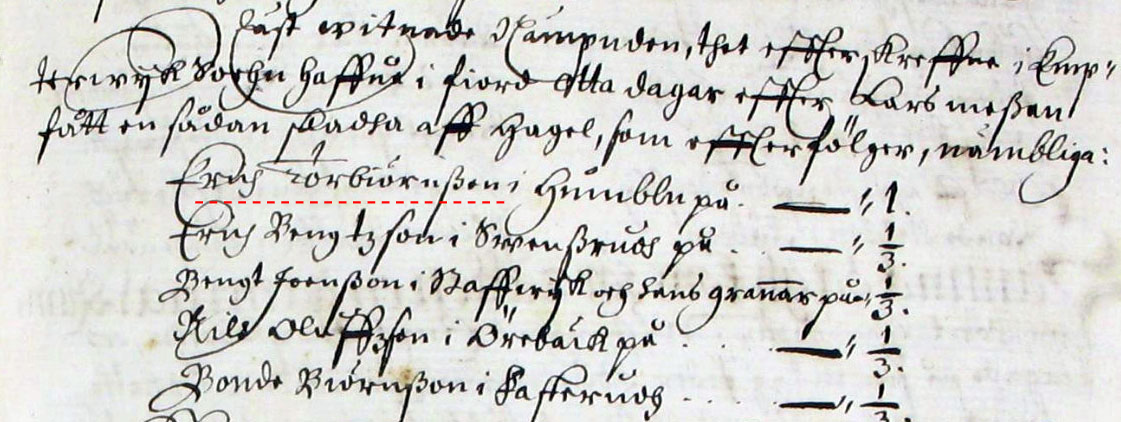 Näst witnade Nämpnden, thet effter, Kreffne i Emp-
terwyk Sochn haffue i fiord Otta dagar effter Larsmeßan
fått en sådan skadha aff Hagel, som effterfölger, nämbliga:
Erich Torbiörnßon i Humbln på. — " 1.
Erich Bengtzson i Swensßrudh på . — " 1/3.
Bengt Joenßon i Staffwyk och hans grannar på " 1/3.
Nils Oluffzson i Örebäck på . . . — " 1/3.
Bonde Biörnßon i Kasterudh . . . — " 1/3.